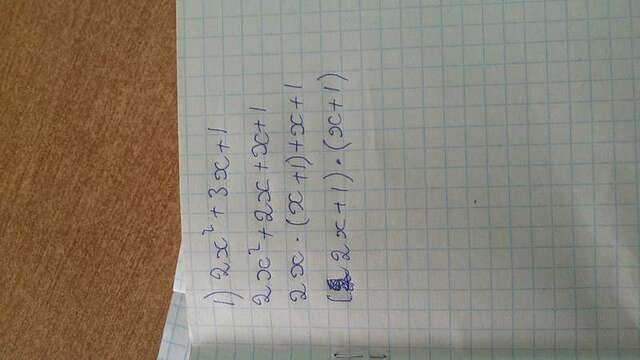 1) 2x² + 3x + 1
2x² + 2x + x + 1
2x · (x + 1) + x + 1
(2x + 1) · (x + 1)